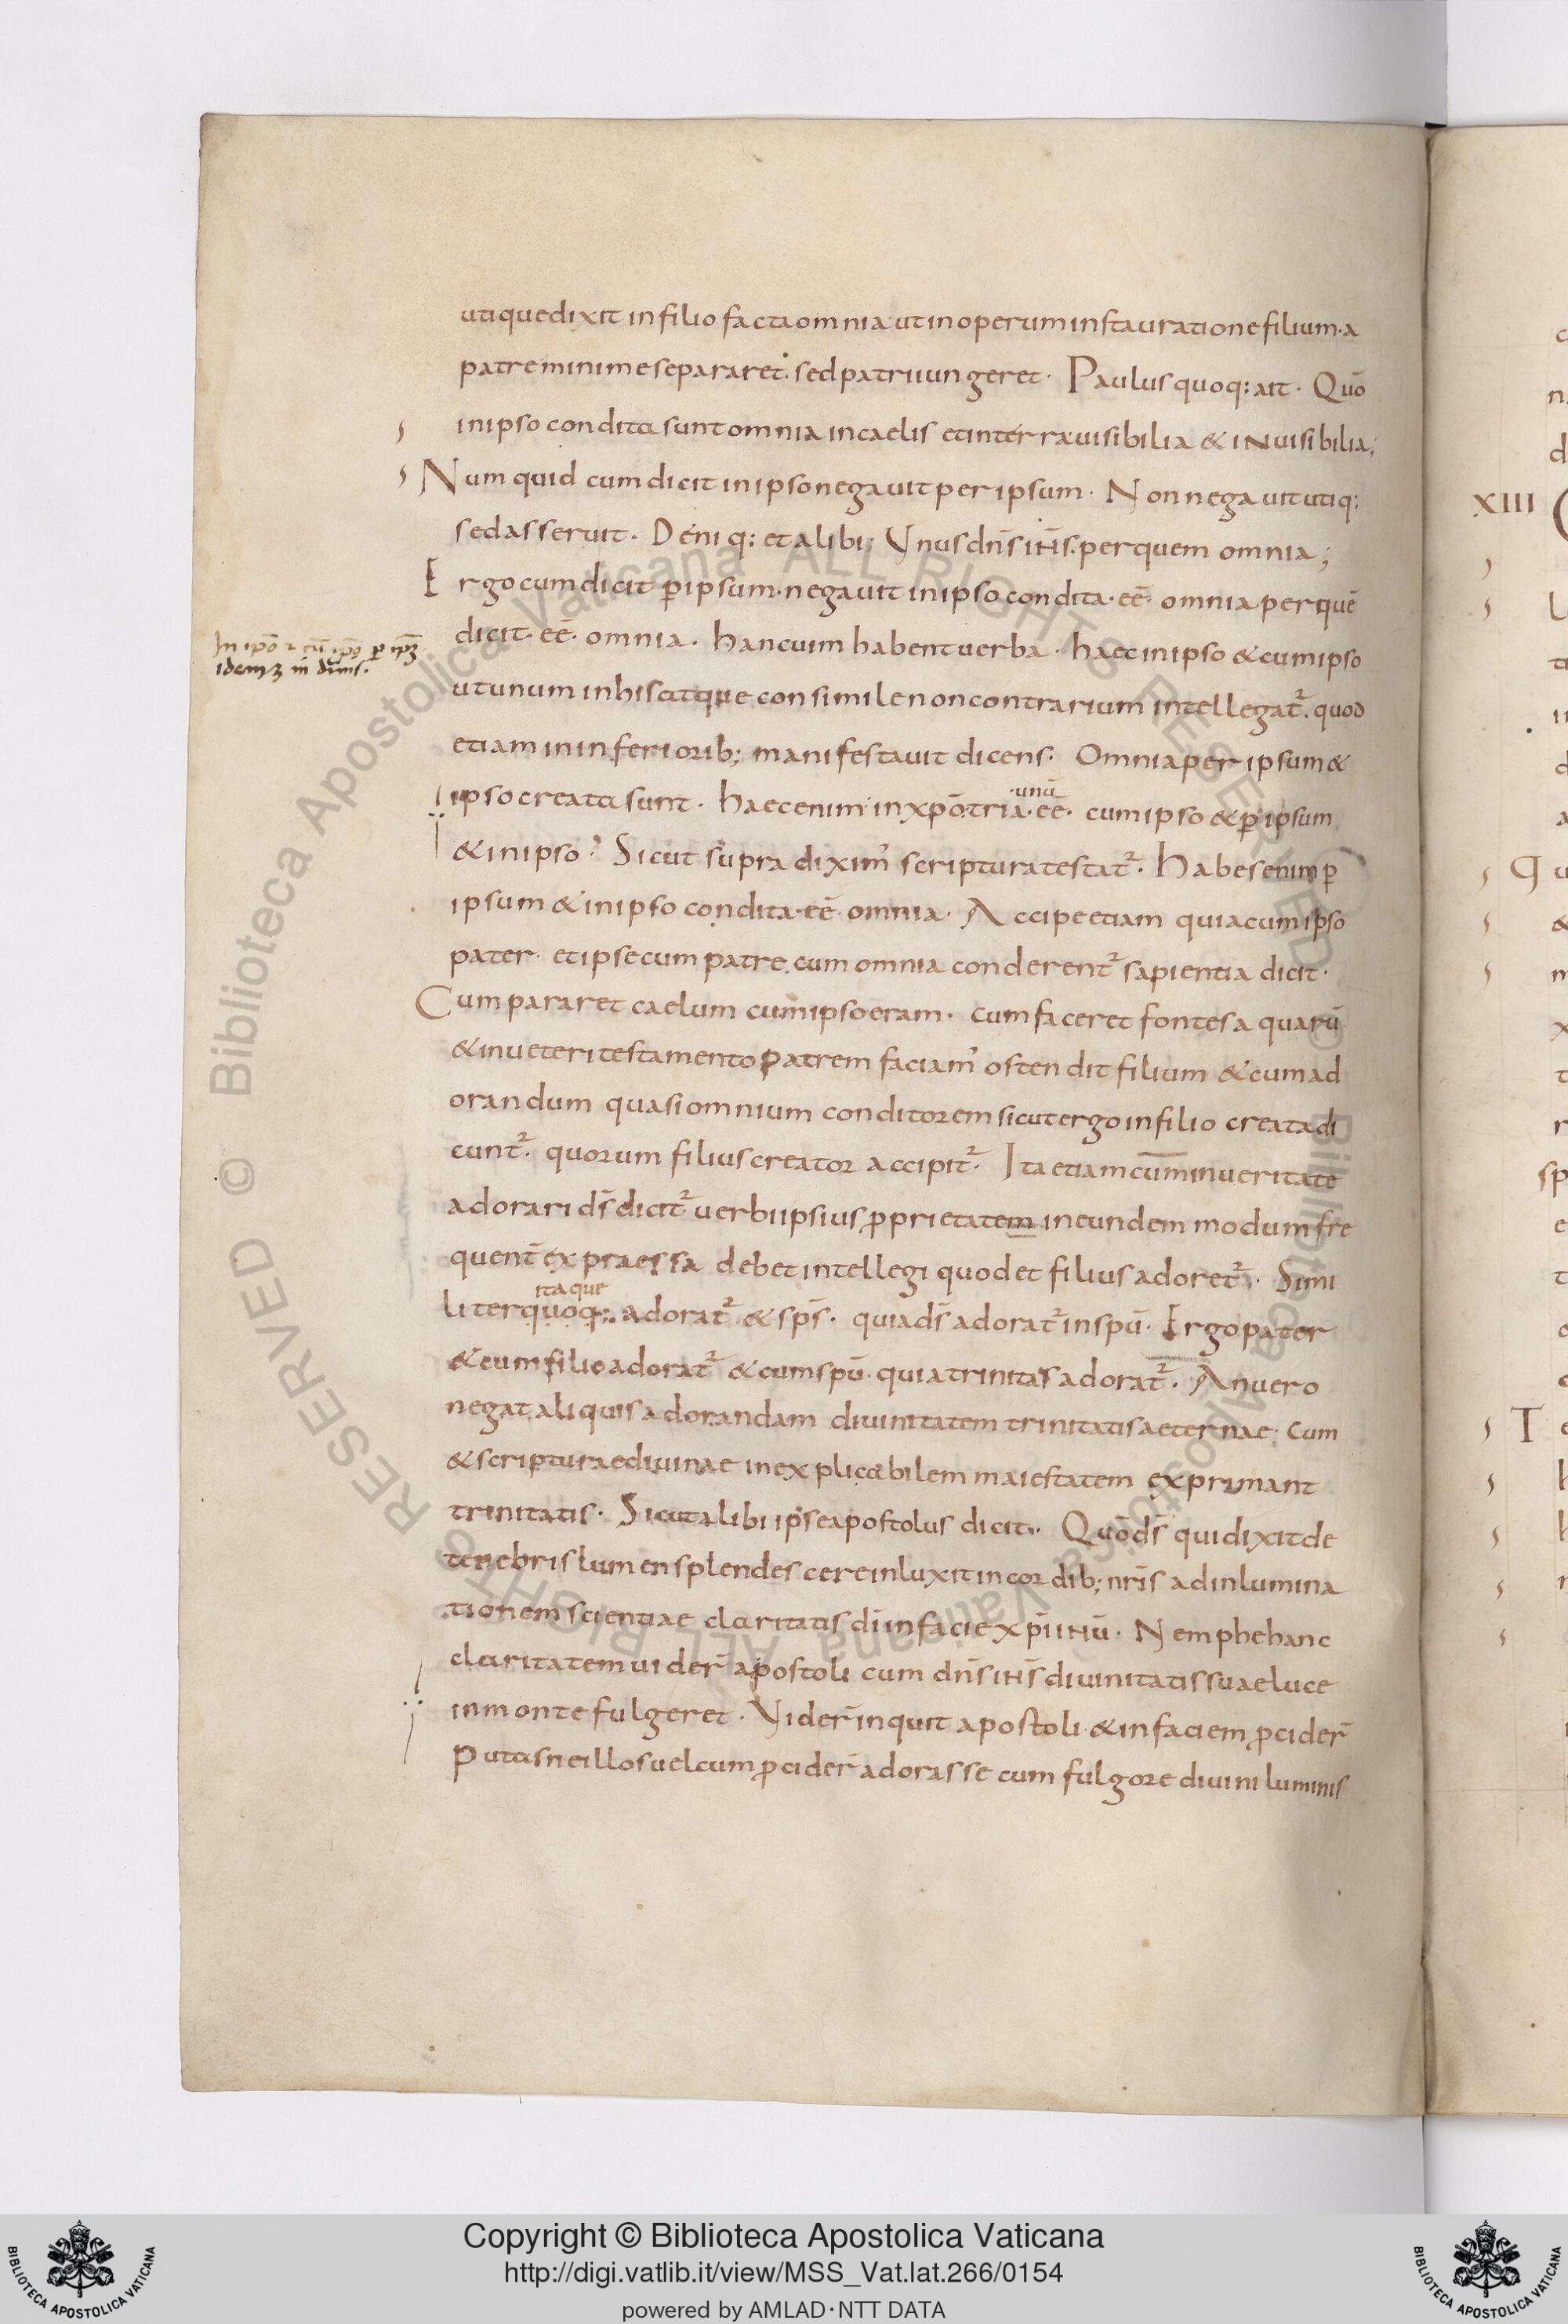 utique dixit in filio facta omnia ut in operum instauratione filium · a
patre minime separaret · sed patri iungeret · Paulus quoq: ait · Quō
in ipso condita sunt omnia in caelis et in terra uisibilia & inuisibilia;
Num quid cum dicit in ipso negauit per ipsum · Non negauit utiq:
sed asseruit · Deniq: et alibi; Unus dn̄s ihs̄ · per quem omnia;
Ergo cum dicit p̱ ipsum · negauit in ipso condita · eē · omnia per quē
dicit · eē · omnia · hanc uim habent uerba · haec in ipso & cum ipso
In ipō ⁊ cū ipō ꝑ ipꝫ
idemꝫ
ut unum in his atque con simile non contrarium intellegat᷑ · quod
etiam in inferiorib; manifestauit dicens · Omnia per ipsum &
ipso creata sunt · haec enim in xpō tria · eē · cum ipso & ꝑ ipsum
unū
& in ipso · Sicut supra diximꝰ scriptura testat᷑ · Habes enim ꝑ
ipsum & in ipso condita · eē · omnia · Accipe etiam quia cum ipso
pater · et ipse cum patre cum omnia conderent᷑ sapientia dicit ·
Cum pararet caelum cum ipso eram · cum faceret fontes aquarū
& in ueteri testamento patrem faciamꝰ ostendit filium & cum ad
orandum quasi omnium conditorem sicut ergo in filio creata di
cunt᷑ · quorum filius creator accipit᷑ · Ita etiam cum in ueritate
adorari ds̄ dicit᷑ uerbi ipsius ꝓprietatem in eundem modum fre
quent̄ expraessa debet intellegi quod et filius adoret᷑ · Simi
itaque
liter quoq: adorat᷑ & sps̄ · quia ds̄ adorat᷑ in spū · Ergo pater
& cum filio adorat᷑ & cum spū · quia trinitas adorat᷑ · An uero
negat aliquis adorandam diuinitatem trinitatis aeternae · cum
& scripturae diuinae inexplicabilem maiestatem exprimant
trinitatis · Sicut alibi ipse apostolus dicit · Quō ds̄ qui dixit de
tenebris lumen splendescere inluxit in cordib; nr̄is ad inlumina
tionem scientiae claritatis dī in facie xpī ihū · Nemphe hanc
claritatem uider̄ apostoli cum dn̄s ihs̄ diuinitatis suae luce
in monte fulgeret · Uider̄ inquit apostoli & in faciem ꝓcider̄
Putasne illos uel cum ꝓcider̄ adorasse cum fulgore diuini luminis
XIII
Copyright © Biblioteca Apostolica Vaticana
http://digi.vatlib.it/view/MSS_Vat.lat.266/0154
powered by AMLAD·NTT DATA
BIBLIOTECA APOSTOLICA VATICANA
BIBLIOTECA APOSTOLICA VATICANA
© Biblioteca Apostolica Vaticana ALL RIGHTS RESERVED
© Biblioteca Apostolica Vaticana ALL RIGHTS RESERVED